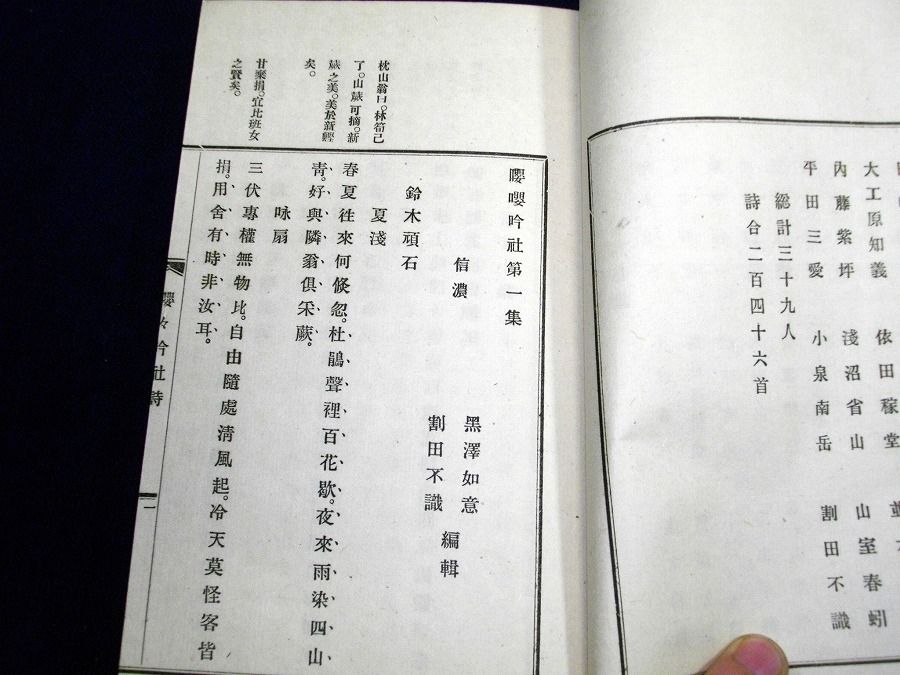 大工原知義
依田稼堂
內藤紫坪
淺沼省山
山室春蚓
平田三愛
小泉南岳
割田不識
総計三十九人
詩合二百四十六首
嚶嚶吟社第一集
信濃
黑澤如意
割田不識
編輯
鈴木頑石
夏淺
春夏往來何倏忽。杜鵑聲裡百花歇。夜來雨染四山
靑。好與隣翁俱采蕨。
咏扇
三伏專權無物比。自由隨處淸風起。冷天莫怪客皆
捐。用舍有時非汝耳。
枕山翁曰。林筍已
了。山蕨可摘。新
蕨之美。美於新鰹
矣。
甘棄捐。宜比班女
之賢矣。
嚶々吟社詩
一